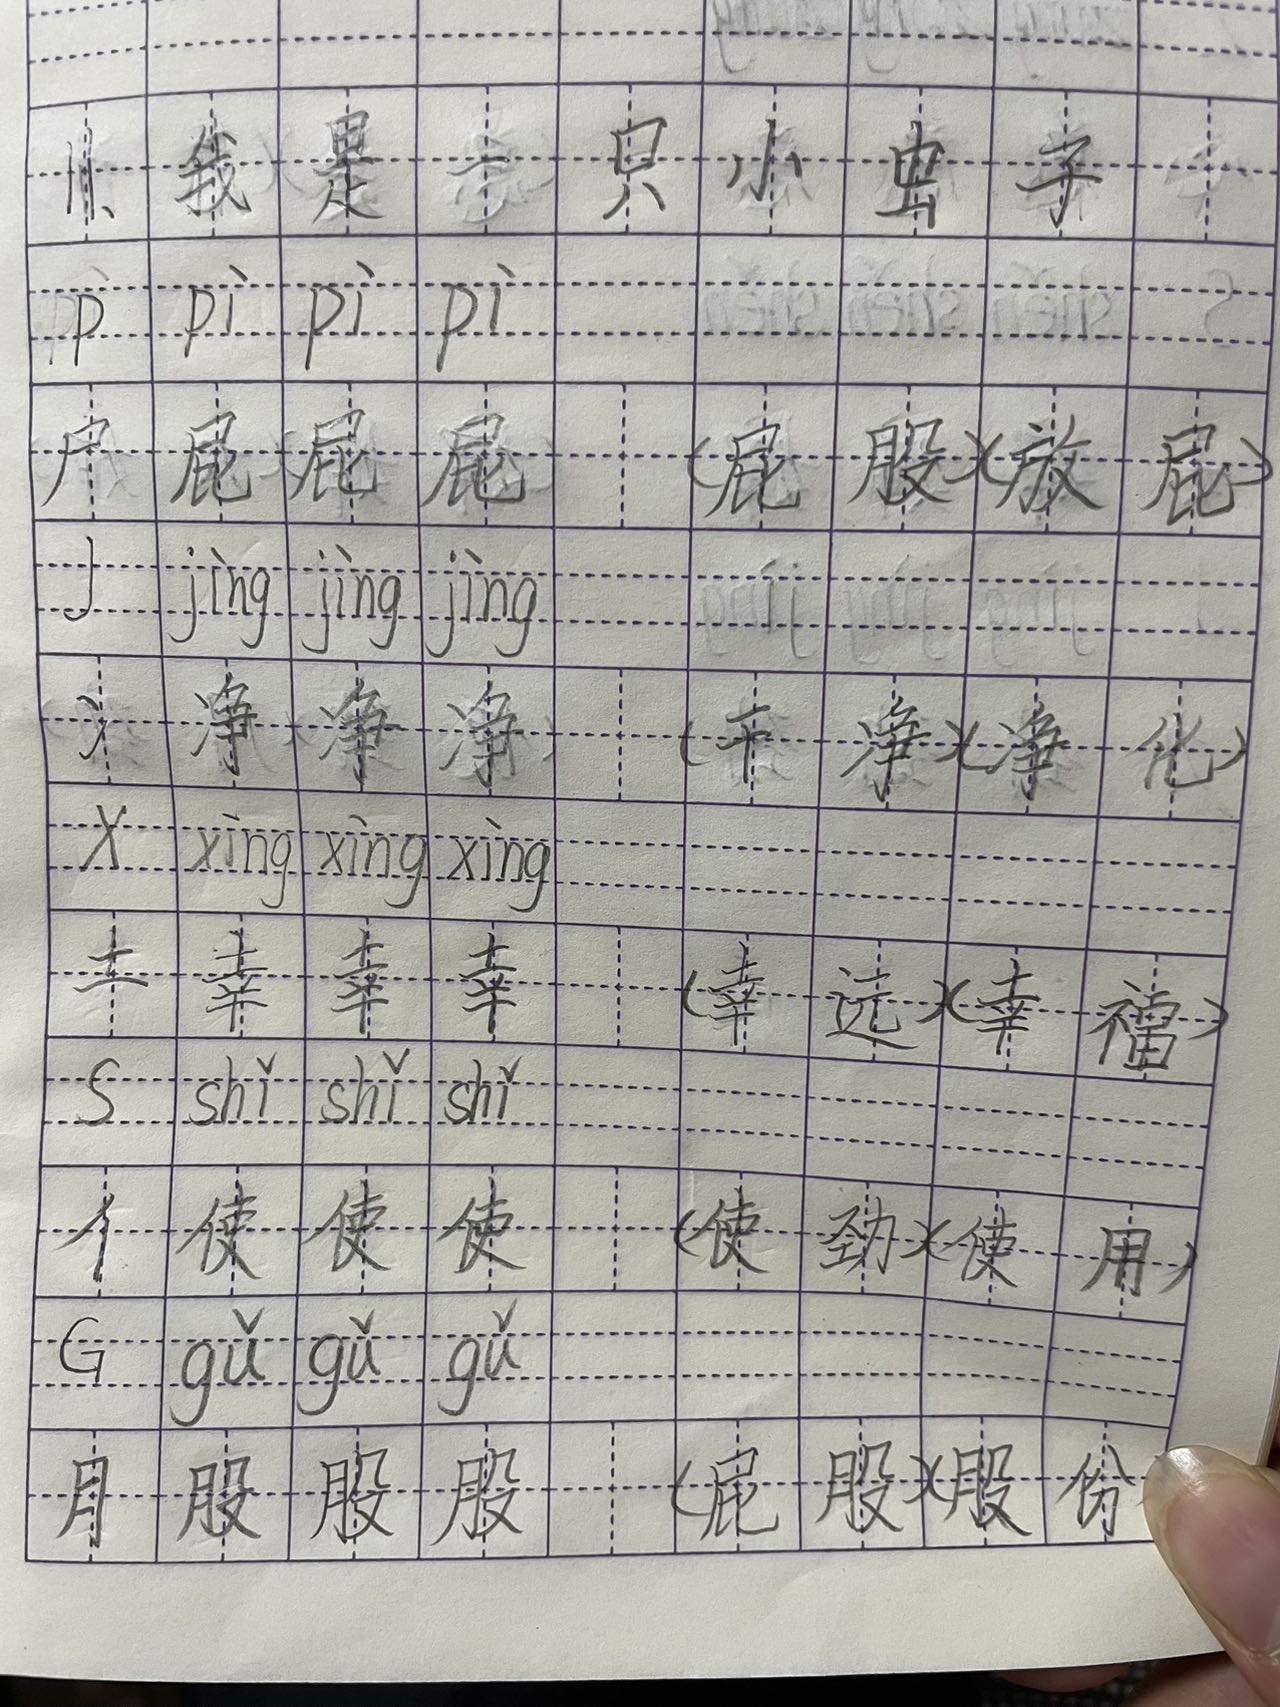 11、我是一只小虫子
p pì pì pì
尸 屁 屁 屁 (屁股)(放屁)
J jìng jìng jìng
冫 净 净 净 (干净)(净化)
X xìng xìng xìng
土 幸 幸 幸 (幸远)(幸福)
S shǐ shǐ shǐ
亻 使 使 使 (使劲)(使用)
G gǔ gǔ gǔ
月 股 股 股 (屁股)(股份